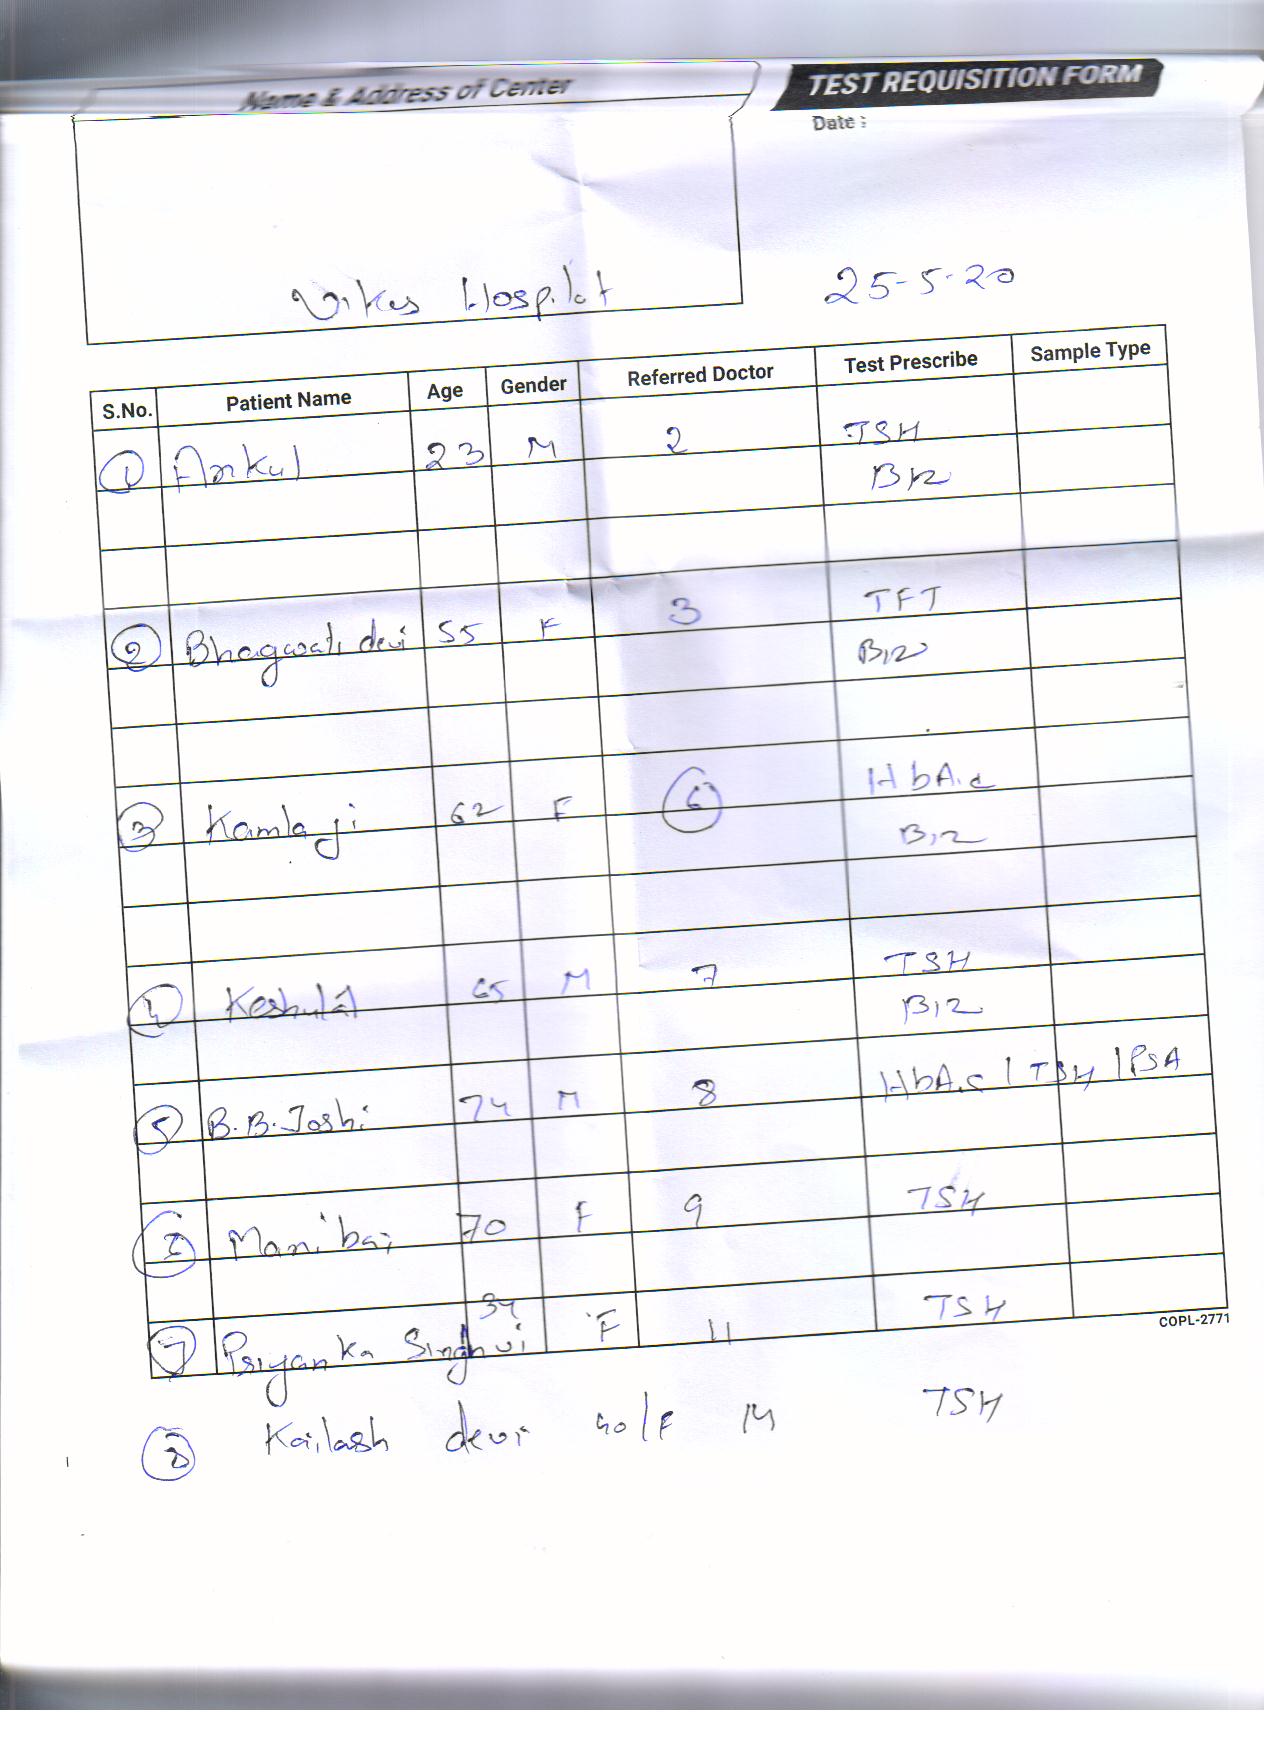 Name & Address of Center
TEST REQUISITION FORM
Date :
Vikas Hospilat
25-5-20
S.No. Patient Name Age Gender Referred Doctor Test Prescribe Sample Type
1 Ankul 23 M 2 TSH
B12
2 Bhagwati devi 55 F 3 TFT
B12
3 Kamla ji 62 F 6 HbA1c
B12
4 Keshulal 65 M 7 TSH
B12
5 B.B.Joshi 74 M 8 HbA1c | TSH | PSA
Mani bai 70 F 9 TSH
7 Priyanka Singhvi 34 F 11 TSH
COPL-2771
8 Kailash devi 40/F 14 TSH